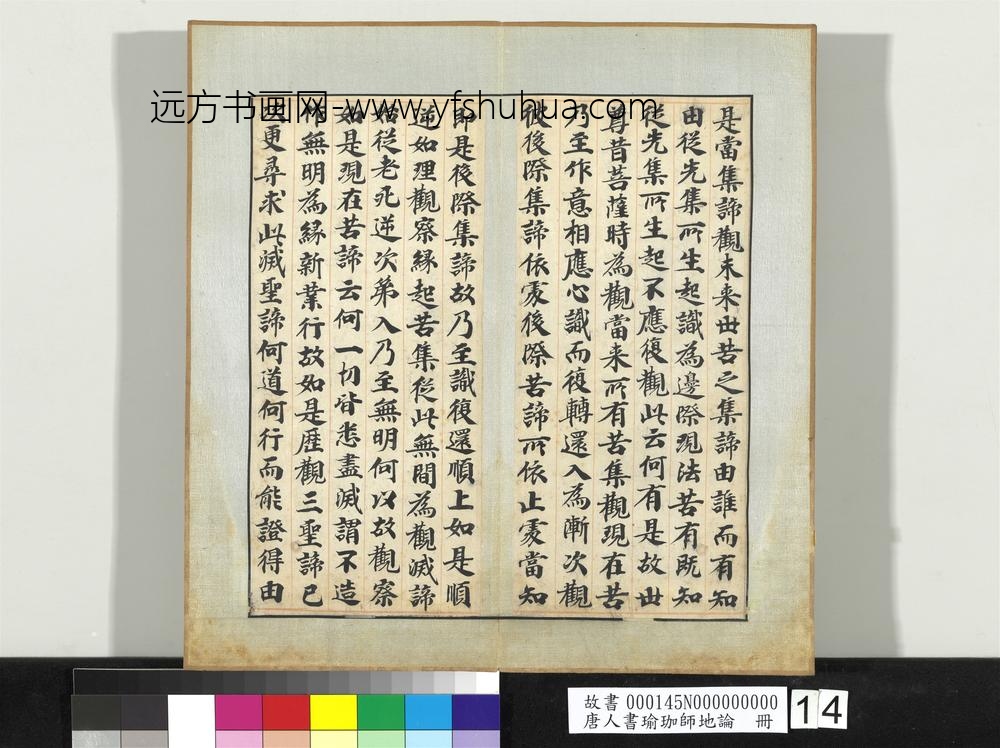 远方书画网-www.yfshuhua.com
是當集諦觀未来世苦之集諦由誰而有知
由從先集所生起識為邊際現法苦有既知
從先集所生起不應復觀此云何有是故世
尊昔菩薩時為觀當来所有苦集觀現在苦
乃至作意相應心識而復轉還入為漸次觀
彼後際集諦依處後際苦諦所依止處當知
即是後際集諦故乃至識復還順上如是順
逆如理觀察緣起苦集從此無間為觀滅諦
始從老死逆次第入乃至無明何以故觀察
如是現在苦諦云何一切皆悉盡滅謂不造
作無明為緣新業行故如是歷觀三聖諦已
更尋求此滅聖諦何道何行而能證得由
故書 000145N000000000
唐人書瑜珈師地論 冊
14